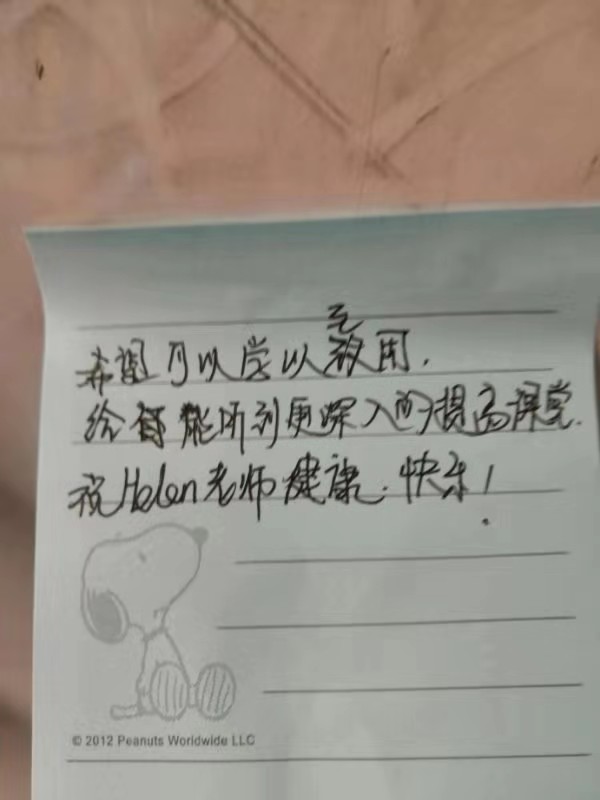 希望可以学以致用.
给 能听到更深入的提高课堂.
祝Helen老师健康.快乐!
© 2012 Peanuts Worldwide LLC